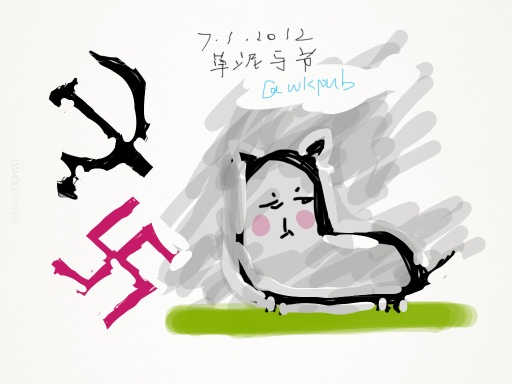 7.1.2012
草泥马节
@wkpub